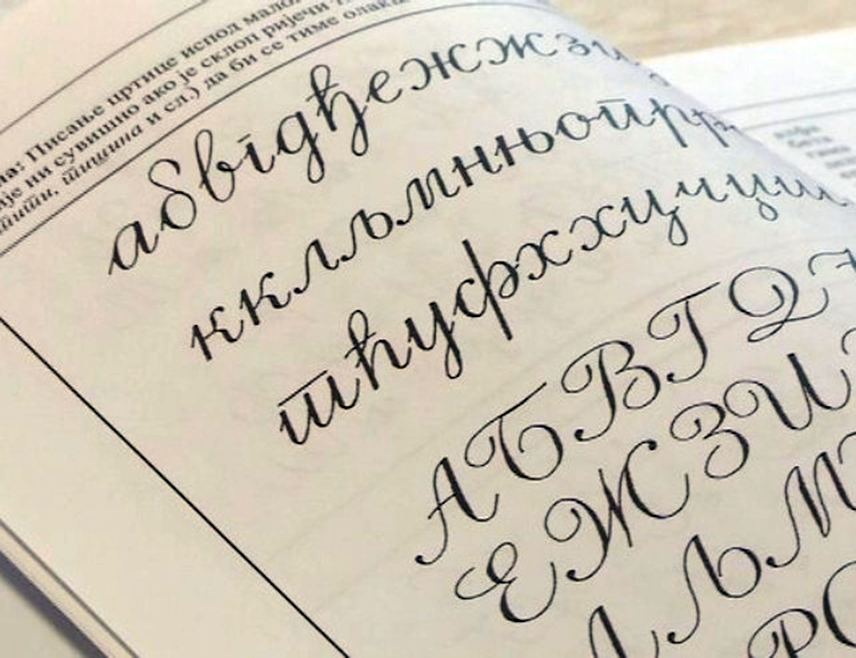 на: Писање цртице испод мало
није ни сувишно ако је склоп ријечи
шити, тишина и сл.) да би се тиме олакш
абвгдђежжзи
кклљмнњопрр
тћуфхxцчџш
АБВГД
ЕЖЗИ
ЛЉМ
РС